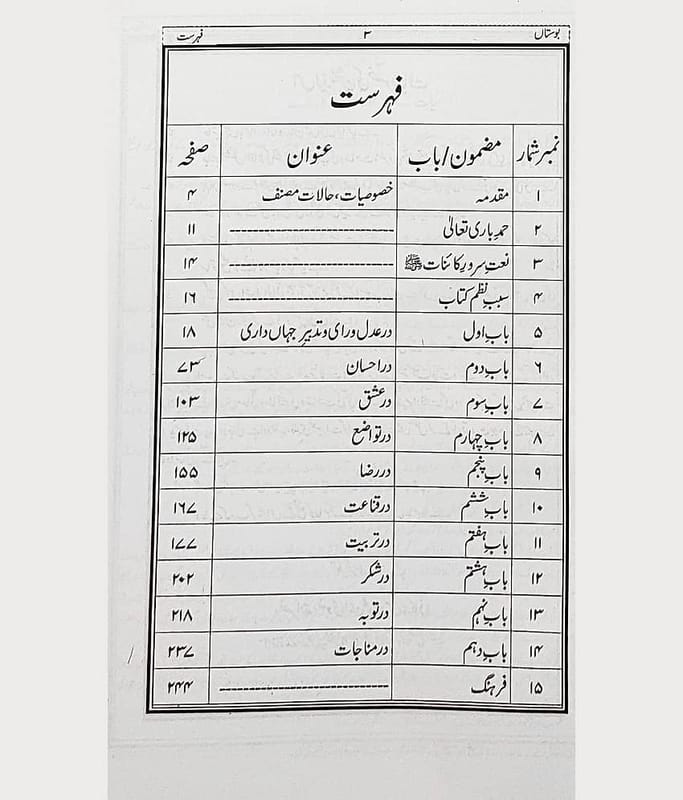 بوستاں ۳ فہرست
فہرست
نمبر شمار مضمون/باب عنوان صفحہ
۱ مقدمہ خصوصیات، حالات مصنف ۴
۲ حمدِ باری تعالیٰ ---------- ۱۱
۳ نعتِ سرورِ کائنات ﷺ ---------- ۱۴
۴ سببِ نظم کتاب ---------- ۱۶
۵ بابِ اول در عدل ورای و تدبیرِ جہاں داری ۱۸
۶ بابِ دوم در احسان ۷۳
۷ بابِ سوم در عشق ۱۰۳
۸ بابِ چہارم در تواضع ۱۲۵
۹ بابِ پنجم در رضا ۱۵۵
۱۰ بابِ ششم در قناعت ۱۶۷
۱۱ بابِ ہفتم در تربیت ۱۷۷
۱۲ بابِ ہشتم در شکر ۲۰۲
۱۳ بابِ نہم در توبہ ۲۱۸
۱۴ بابِ دہم در مناجات ۲۳۷
۱۵ فرہنگ ---------- ۲۴۴